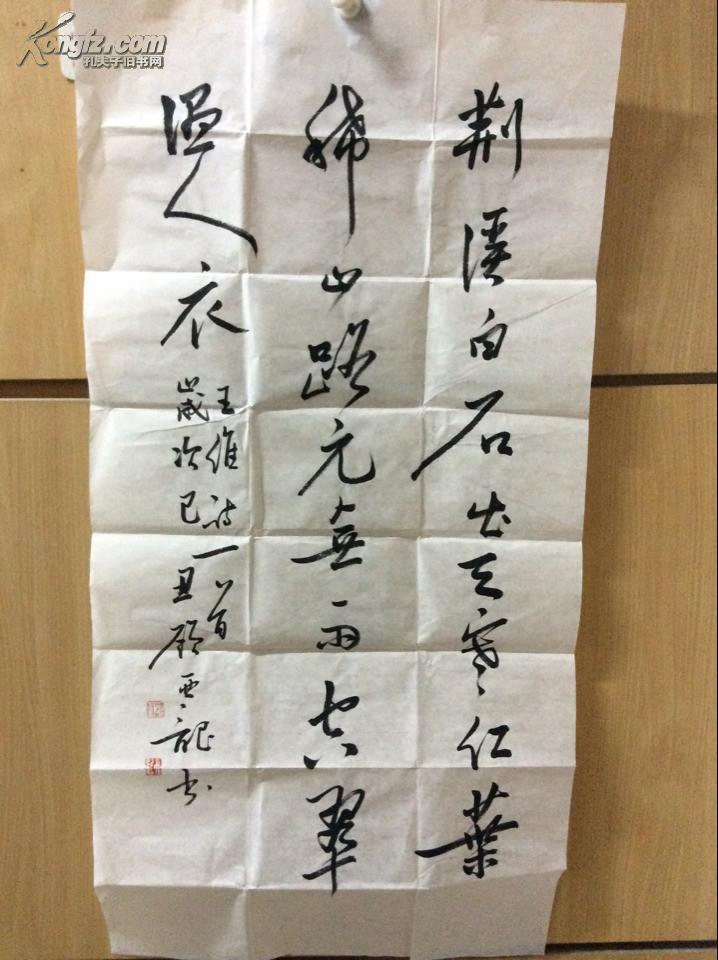 Kongfz.com
孔夫子旧书网
荆溪白石出天寒红葉
稀山路元無雨空翠
湿人衣
王維詩一首
歲次己丑顾亞龍书